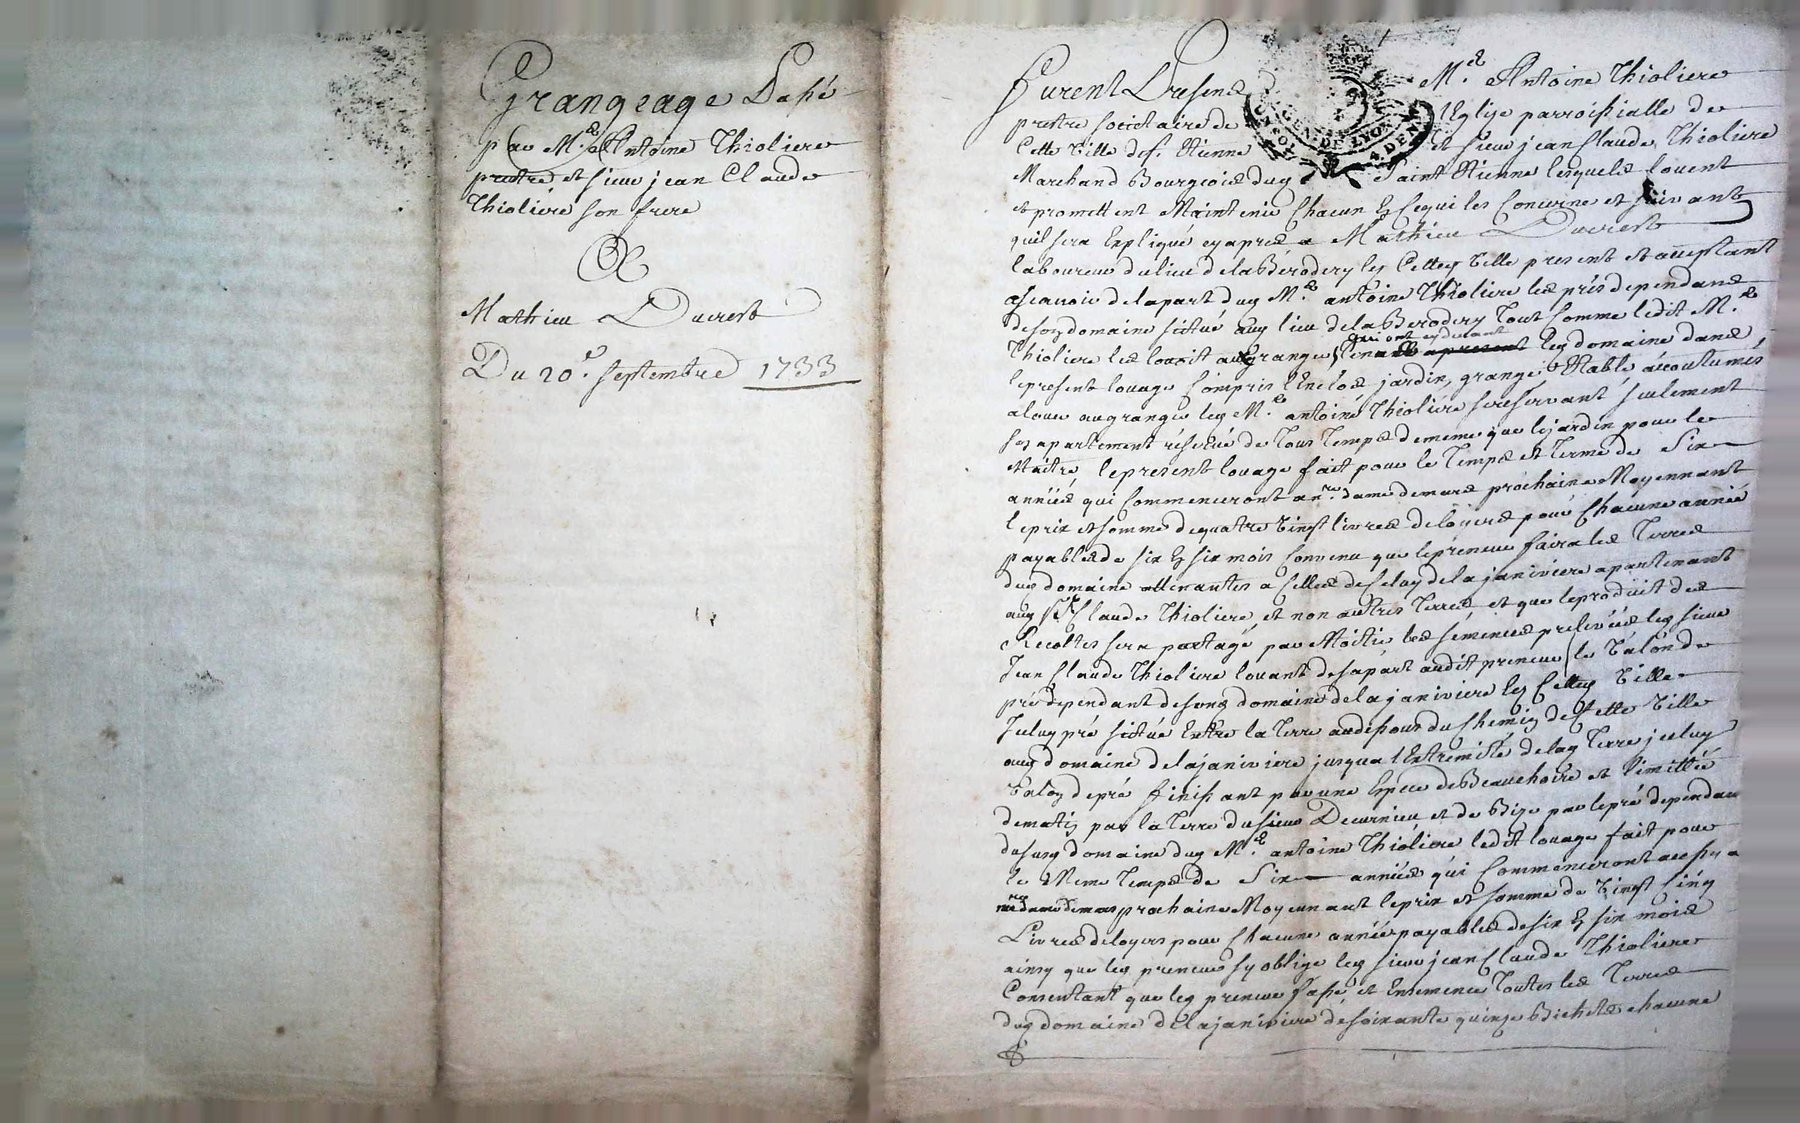 Grangeage Passé
par Mre Antoine Thioliere
prestre et sieur jean Claude
Thioliére son frere
A
Mathieu Ducrest
Du 20e. septembre 1733
Furent Presens Mre Antoine Thioliere
prestre societaire de l'Eglise parroissialle de
Cette Ville de St. Etienne et sieur jean Claude Thioliere
Marchand Bourgeois dud Saint Etienne lesquels louent
et promettent Maintenir Chacun En Ce qui les Concerne et suivant
quil sera Expliqué cy apres a Mathieu Ducrest
laboureur du lieu de la Berodery les Cette Ville present et acceptant
ascavoir de la part dud Mre antoine Thioliere les prés dependans
de son domaine situé aud lieu de la Berodery Tout Comme ledit Mre
Thioliere les louoit aux grangers qui ont cy devant led domaine dans
le present louage Compris l'Enclos jardin, grange Etable accoutumés
a louer au granger led Mre antoine Thioliere se reservant seulement
ses apartement réservé de Tous Temps de meme que le jardin pour le
Maitre le present louage fait pour le Temps et Terme de Six
années qui Commenceront a nre. dame de mars prochaine Moyennant
le prix et somme de quatre Vingt livres de loyers pour Chacune année
payables de six En six mois Convenu que le preneur faira les Terres
dud domaine attenantes a Celles de Celuy de la janiviere apartenant
aud Sr Claude Thioliere, et non autres Terres et que le produit des
Recoltes sera partagé par Moitié les semences prelevées led sieur
Jean Claude Thioliere louant de sa part audit preneur le Talon de
pré dependant de son domaine de la janiviere les Cette Ville
Iceluy pré situé Entre la Terre au dessous du Chemin de Cette Ville
aud domaine de la janiviere jusqua l'Extremité de lad Terre iceluy
Talon de pré finissant par une Espece de Beauchoire et limitté
de matin par la Terre du sieur Decurnieu et de Bize par le pré dependant
du susd domaine dud Mre antoine Thioliere ledit louage fait pour
le Meme Temps de Six années qui Commenceront aussy a
nre dame de mars prochaine Moyennant le prix et somme de Vingt Cinq
Livres de loyers pour Chacune année payables de six En six mois
ainsy que led preneur sy oblige led sieur jean Claude Thioliere
Consentant que led preneur fasse et Ensemence Toutes les Terres
dud domaine de la janiviere de soixante quinze Bichets chacune